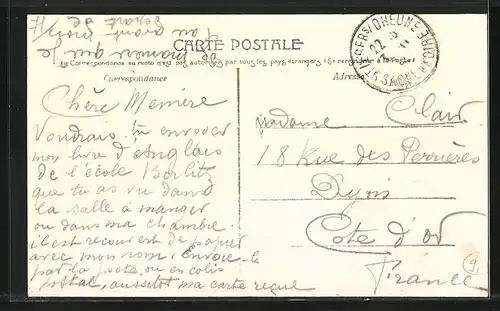 CARTE POSTALE
La Correspondance au recto n'est pas acceptée par tous les pays étrangers (Se renseigner à la Poste)
Correspondance
Adresse
ST LEGER S/ DHEUNE
SAONE ET LOIRE
22
Chère Memère
Voudrais-tu envoyer
mon livre d'Anglais
de l'école Berlitz
que tu as vu dans
la salle à manger
ou dans ma chambre
il est recouvert de papier
avec mon nom, Envoie-le
par la poste, ou en colis
postal, aussitôt ma carte reçue
de manière que je
l'ai avant mon
Madame Clair
18 Rue des Perrières
Dijon
Côte d'or
France
9.